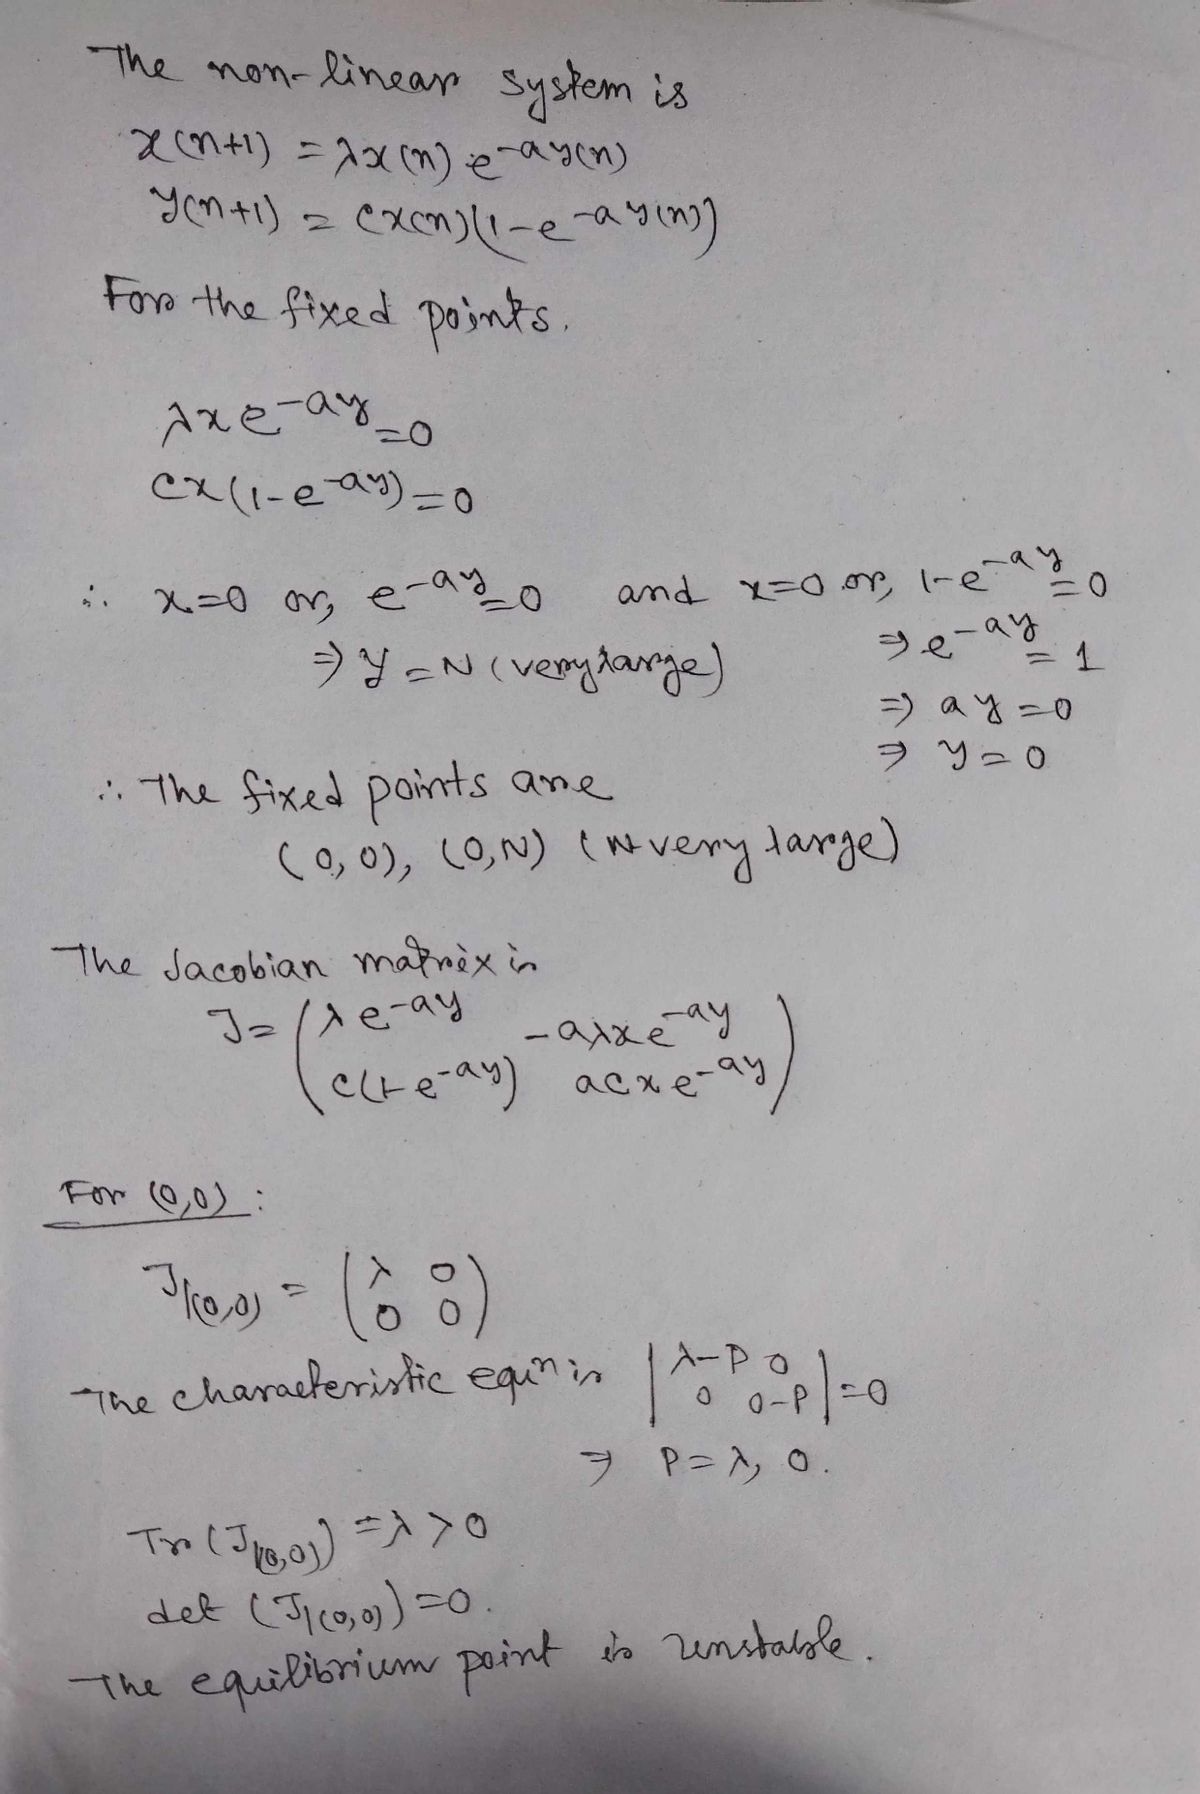 The non-linear system is
x(n+1) = λx(n) e^-ay(n)
y(n+1) = cx(n)(1-e^-ay(n))
For the fixed points.
λxe^-ay=0
cx(1-e^-ay)=0
∴ x=0 or, e^-ay=0 and x=0 or, 1-e^-ay=0
⇒ y=N (very large) ⇒ e^-ay = 1
⇒ ay=0
⇒ y=0
∴ The fixed points are
(0,0), (0,N) (N very large)
The Jacobian matrix is
J= ( λe^-ay -aλxe^-ay
c(1-e^-ay) acxe^-ay )
For (0,0) :
J|(0,0) = ( λ 0
0 0 )
The characteristic equn is | λ-P 0
0 0-P | =0
⇒ P=λ, 0.
Tr (J|(0,0)) =λ>0
det (J|(0,0))=0.
The equilibrium point is unstable.